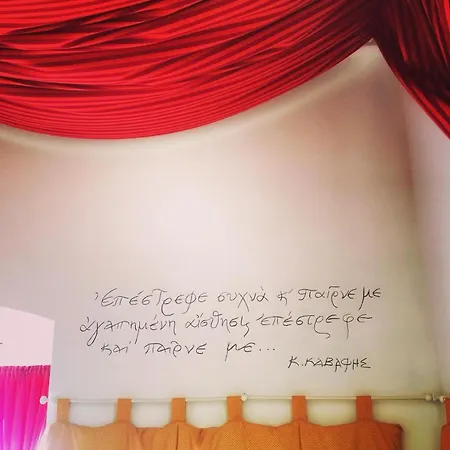 Ἐπέστρεφε συχνὰ κ' παῖρνε με
ἀγαπημένη αἴσθησις ἐπέστρεφε
καὶ παῖρνε με...
Κ. ΚΑΒΑΦΗΣ